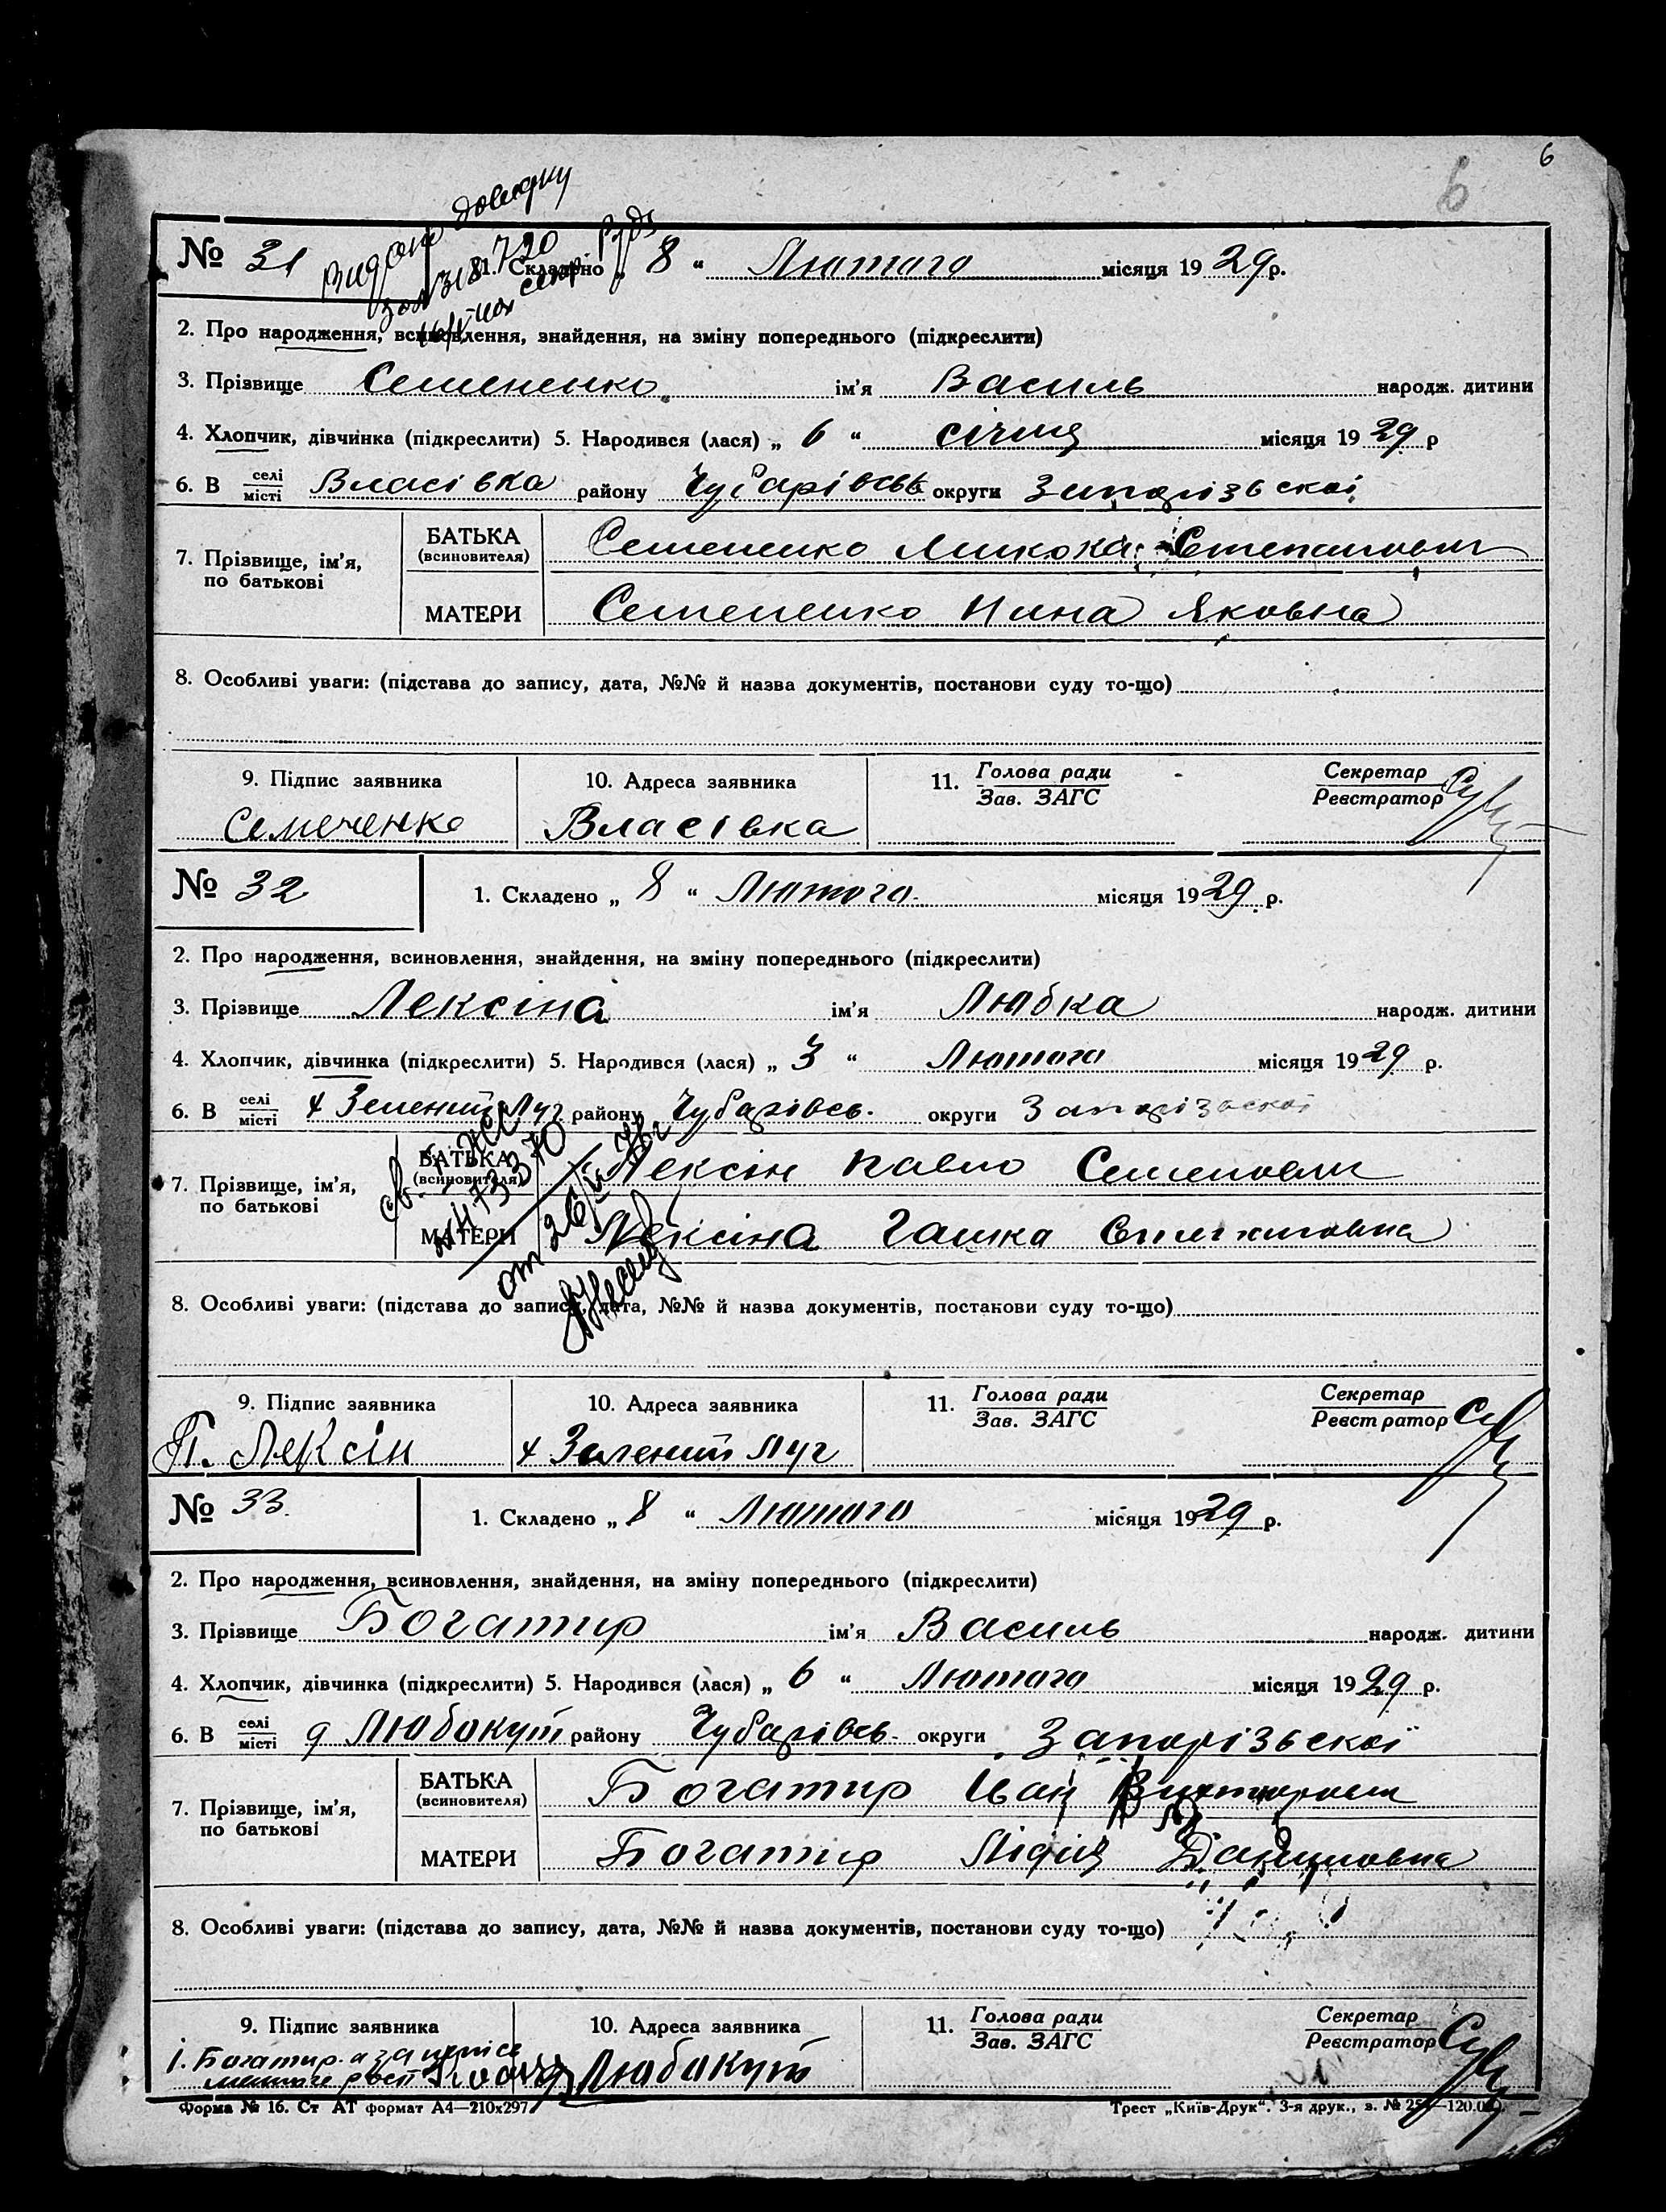 6
6
Видано довідку
№ 31 1. Складено „ 8 “ Лютого місяця 1929 р.
2. Про народження, всиновлення, знайдення, на зміну попереднього (підкреслити)
3. Прізвище Семененко ім'я Василь народж. дитини
4. Хлопчик, дівчинка (підкреслити) 5. Народився (лася) „ 6 “ січня місяця 1929 р
6. В селі/місті Власівка району Чубарівськ округи Запорізьскої
7. Прізвище, ім'я, по батькові
БАТЬКА (всиновителя) Семененко Микола Степанович
МАТЕРИ Семененко Нина Яковна
8. Особливі уваги: (підстава до запису, дата, №№ й назва документів, постанови суду то-що)
9. Підпис заявника 10. Адреса заявника 11. Голова ради/Зав. ЗАГС Секретар/Реєстратор
Семененко Власівка
№ 32 1. Складено „ 8 “ Лютого місяця 1929 р.
2. Про народження, всиновлення, знайдення, на зміну попереднього (підкреслити)
3. Прізвище Лексіна ім'я Любка народж. дитини
4. Хлопчик, дівчинка (підкреслити) 5. Народився (лася) „ 3 “ Лютого місяця 1929 р.
6. В селі/місті х Зелений Луг району Чубарівсь. округи Запорізьскої
7. Прізвище, ім'я, по батькові
БАТЬКА (всиновителя) Лексін Павло Семенович
МАТЕРИ Лексіна Гашка
8. Особливі уваги: (підстава до запису, дата, №№ й назва документів, постанови суду то-що)
9. Підпис заявника 10. Адреса заявника 11. Голова ради/Зав. ЗАГС Секретар/Реєстратор
П. Лексін х Зелений Луг
№ 33. 1. Складено „ 8 “ Лютого місяця 1929 р.
2. Про народження, всиновлення, знайдення, на зміну попереднього (підкреслити)
3. Прізвище Богатир ім'я Василь народж. дитини
4. Хлопчик, дівчинка (підкреслити) 5. Народився (лася) „ 6 “ Лютого місяця 1929 р.
6. В селі/місті д Любокут району Чубарівсь. округи Запорізьскої
7. Прізвище, ім'я, по батькові
БАТЬКА (всиновителя) Богатир Іван
МАТЕРИ Богатир Лідія Даниловна
8. Особливі уваги: (підстава до запису, дата, №№ й назва документів, постанови суду то-що)
9. Підпис заявника 10. Адреса заявника 11. Голова ради/Зав. ЗАГС Секретар/Реєстратор
І. Богатир. д Любокут
Форма № 16. Ст АТ формат А4—210х297 Трест „Київ-Друк“. 3-я друк., з. №